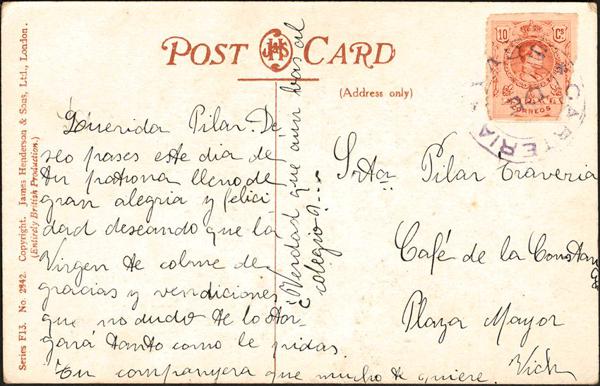 POST CARD
JH&S
(Address only)
Series F13. No. 2842. Copyright. James Henderson & Sons, Ltd., London.
(Entirely British Production.)
10 Cs
CORREOS
CARTERIA
Querida Pilar. De
seo pases este dia de
tu patrona lleno de
gran alegria y felici
dad deseando que la
Virgen te colme de
gracias y vendiciones
que no dudo te lo otor
gará tanto como le pidas.
Tu companyera que mucho te quiere.
¿Verdad que aún bas al
colegio?...
Srta Pilar Traveria
Café de la Constancia
Plaza Mayor
Vich